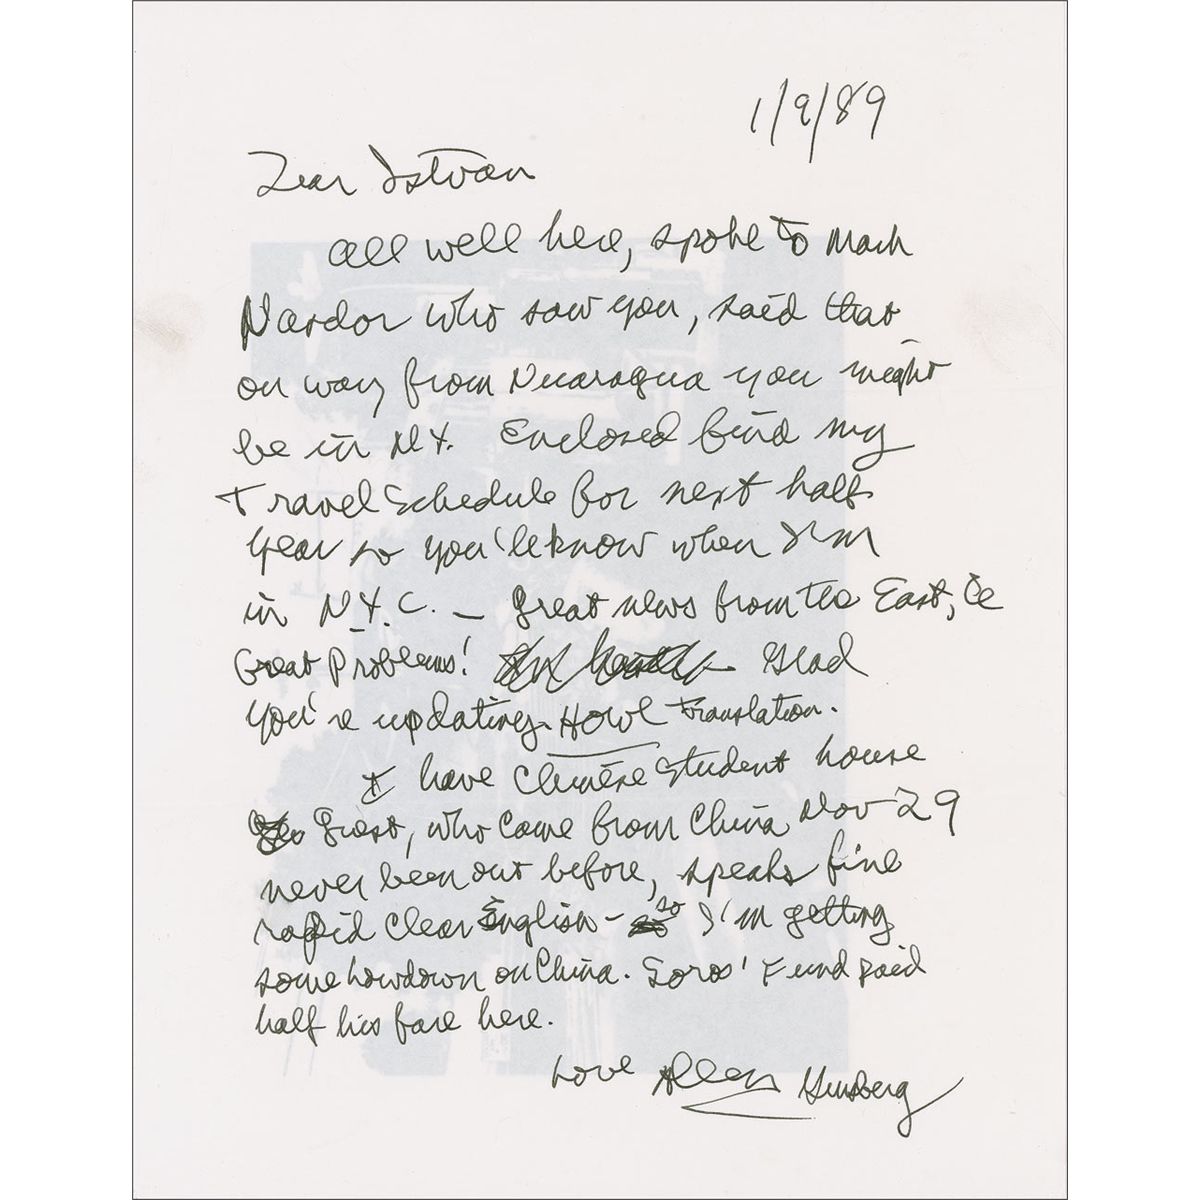 1/9/89
Dear Istvan
All well here, spoke to Mark
Nardor who saw you, said that
on way from Nicaragua you might
be in N.Y. Enclosed find my
travel Schedule for next half
year so you'll know when I'm
in N.Y.C. — Great news from the East, ie
Great Problems! Glad
you're updating Howl translation.
I have Chinese student house
guest, who came from China Nov 29
never been out before, speaks fine
rapid clear English - so I'm getting
some lowdown on China. Soros' Fund paid
half his fare here.
Love Allen Ginsberg